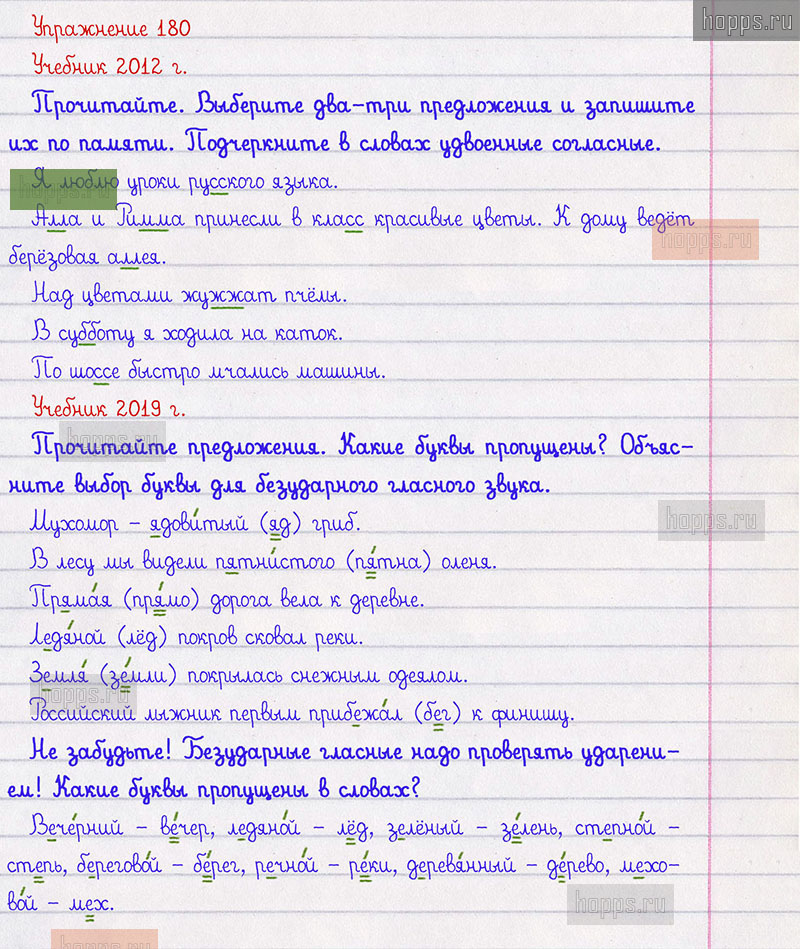 hopps.ru
Упражнение 180
Учебник 2012 г.
Прочитайте. Выберите два-три предложения и запишите
их по памяти. Подчеркните в словах удвоенные согласные.
Я люблю уроки русского языка.
hopps.ru
Алла и Римма принесли в класс красивые цветы. К дому ведёт
hopps.ru
берёзовая аллея.
Над цветами жужжат пчёлы.
В субботу я ходила на каток.
По шоссе быстро мчались машины.
Учебник 2019 г.
hopps.ru
Прочитайте предложения. Какие буквы пропущены? Объяс-
ните выбор буквы для безударного гласного звука.
Мухомор - ядови́тый (яд) гриб.
hopps.ru
В лесу мы видели пятни́стого (пя́тна) оленя.
Пряма́я (пря́мо) дорога вела к деревне.
Ледя́ной (лёд) покров сковал реки.
Земля́ (зе́мли) покрылась снежным одеялом.
hopps.ru
Российский лыжник первым прибежа́л (бег) к финишу.
Не забудьте! Безударные гласные надо проверять ударени-
ем! Какие буквы пропущены в словах?
Вече́рний - ве́чер, ледяно́й - лёд, зелёный - зе́лень, степно́й -
степь, берегово́й - бе́рег, речно́й - ре́ки, деревя́нный - де́рево, мехо-
во́й - мех.
hopps.ru
hopps.ru